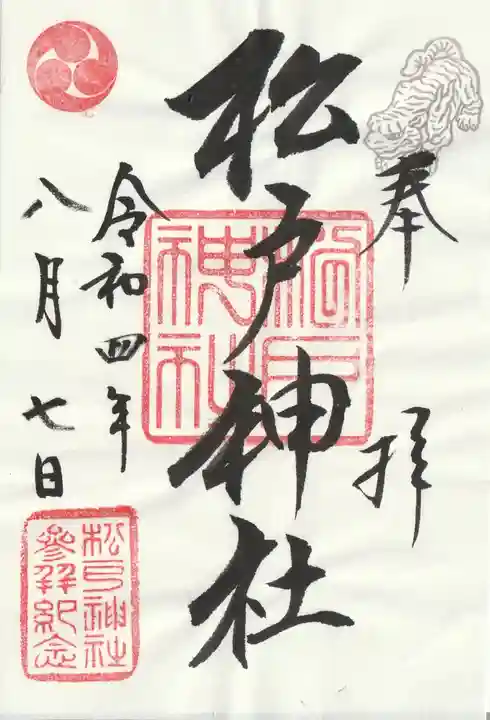 奉拝
松戸神社
令和四年
八月七日
松戸神社
松戸神社
參拜紀念